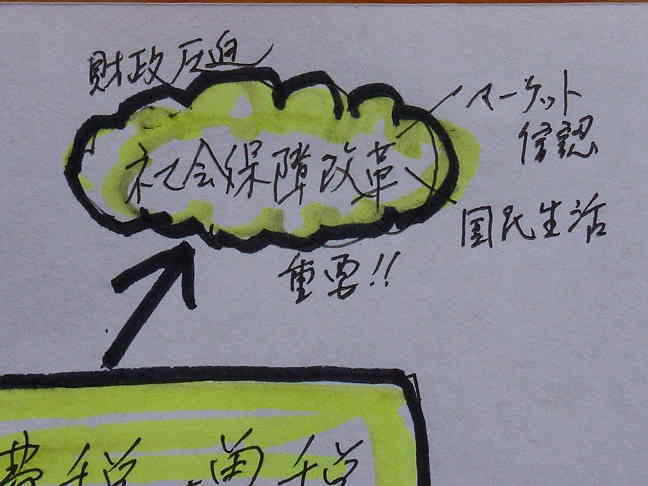 財政圧迫
マーケット
信認
社会保障改革
国民生活
重要!!
費税 増税